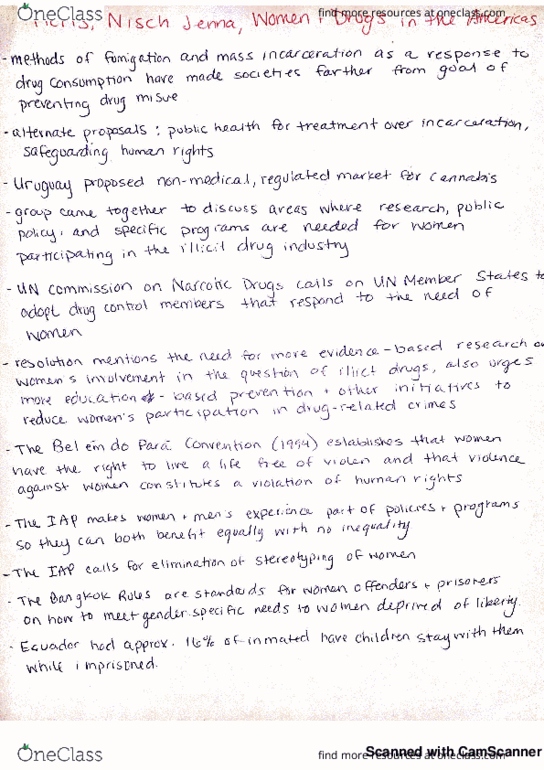 OneClass
find more resources at oneclass.com
Nisch Jenna, Women + Drugs in the Americas
- methods of fumigation and mass incarceration as a response to
drug consumption have made societies farther from goal of
preventing drug misue
- alternate proposals : public health for treatment over incarceration,
safeguarding human rights
- Uruguay proposed non-medical, regulated market for cannabis
- group came together to discuss areas where research, public
policy, and specific programs are needed for women
participating in the illicit drug industry
- UN commission on Narcotic Drugs calls on UN Member States to
adopt drug control members that respond to the need of
women
- resolution mentions the need for more evidence-based research on
women's involvement in the question of illict drugs, also urges
more education - based prevention + other initiatives to
reduce women's participation in drug-related crimes
- The Belem do Pará Convention (1994) establishes that women
have the right to live a life free of violen and that violence
against women constitutes a violation of human rights
- The IAP makes women + men's experience part of policies + programs
so they can both benefit equally with no inequality
- The IAP calls for elimination of stereotyping of women
- The Bangkok Rules are standards for women offenders + prisoners
on how to meet gender specific needs to women deprived of liberty.
- Ecuador had approx. 16% of inmated have children stay with them
while imprisoned.
OneClass
find more resources at oneclass.com
Scanned with CamScanner